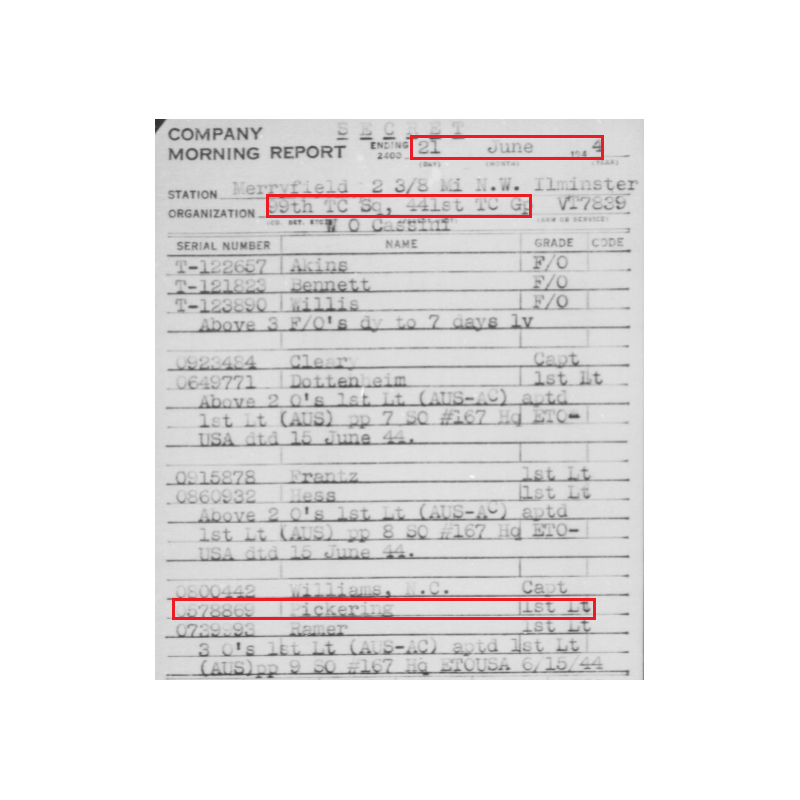 S E C R E T
COMPANY
MORNING REPORT
ENDING
2400
21 June 194 4
(DAY) (MONTH) (YEAR)
STATION Merryfield 2 3/8 Mi N.W. Ilminster
ORGANIZATION 99th TC Sq, 441st TC Gp VT7839
W O Cassini
SERIAL NUMBER NAME GRADE CODE
T-122657 Akins F/O
T-121823 Bennett F/O
T-123890 Willis F/O
Above 3 F/O's dy to 7 days lv
0923484 Cleary Capt
0649771 Dottenheim 1st Lt
Above 2 O's 1st Lt (AUS-AC) aptd
1st Lt (AUS) pp 7 SO #167 Hq ETO-
USA dtd 15 June 44.
0915878 Frantz 1st Lt
0860932 Hess 1st Lt
Above 2 O's 1st Lt (AUS-AC) aptd
1st Lt (AUS) pp 8 SO #167 Hq ETO-
USA dtd 15 June 44.
0800442 Williams, N.C. Capt
0578869 Pickering 1st Lt
Ramer 1st Lt
3 O's 1st Lt (AUS-AC) aptd 1st Lt
(AUS)pp 9 SO #167 Hq ETOUSA 6/15/44